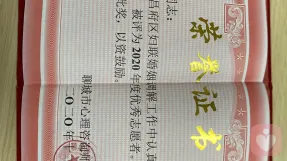 荣誉证书
同志：
昌府区妇联婚姻调解工作中认真
被评为2020年度优秀志愿者。
此奖，以资鼓励。
聊城市心理咨询师
二〇二〇年